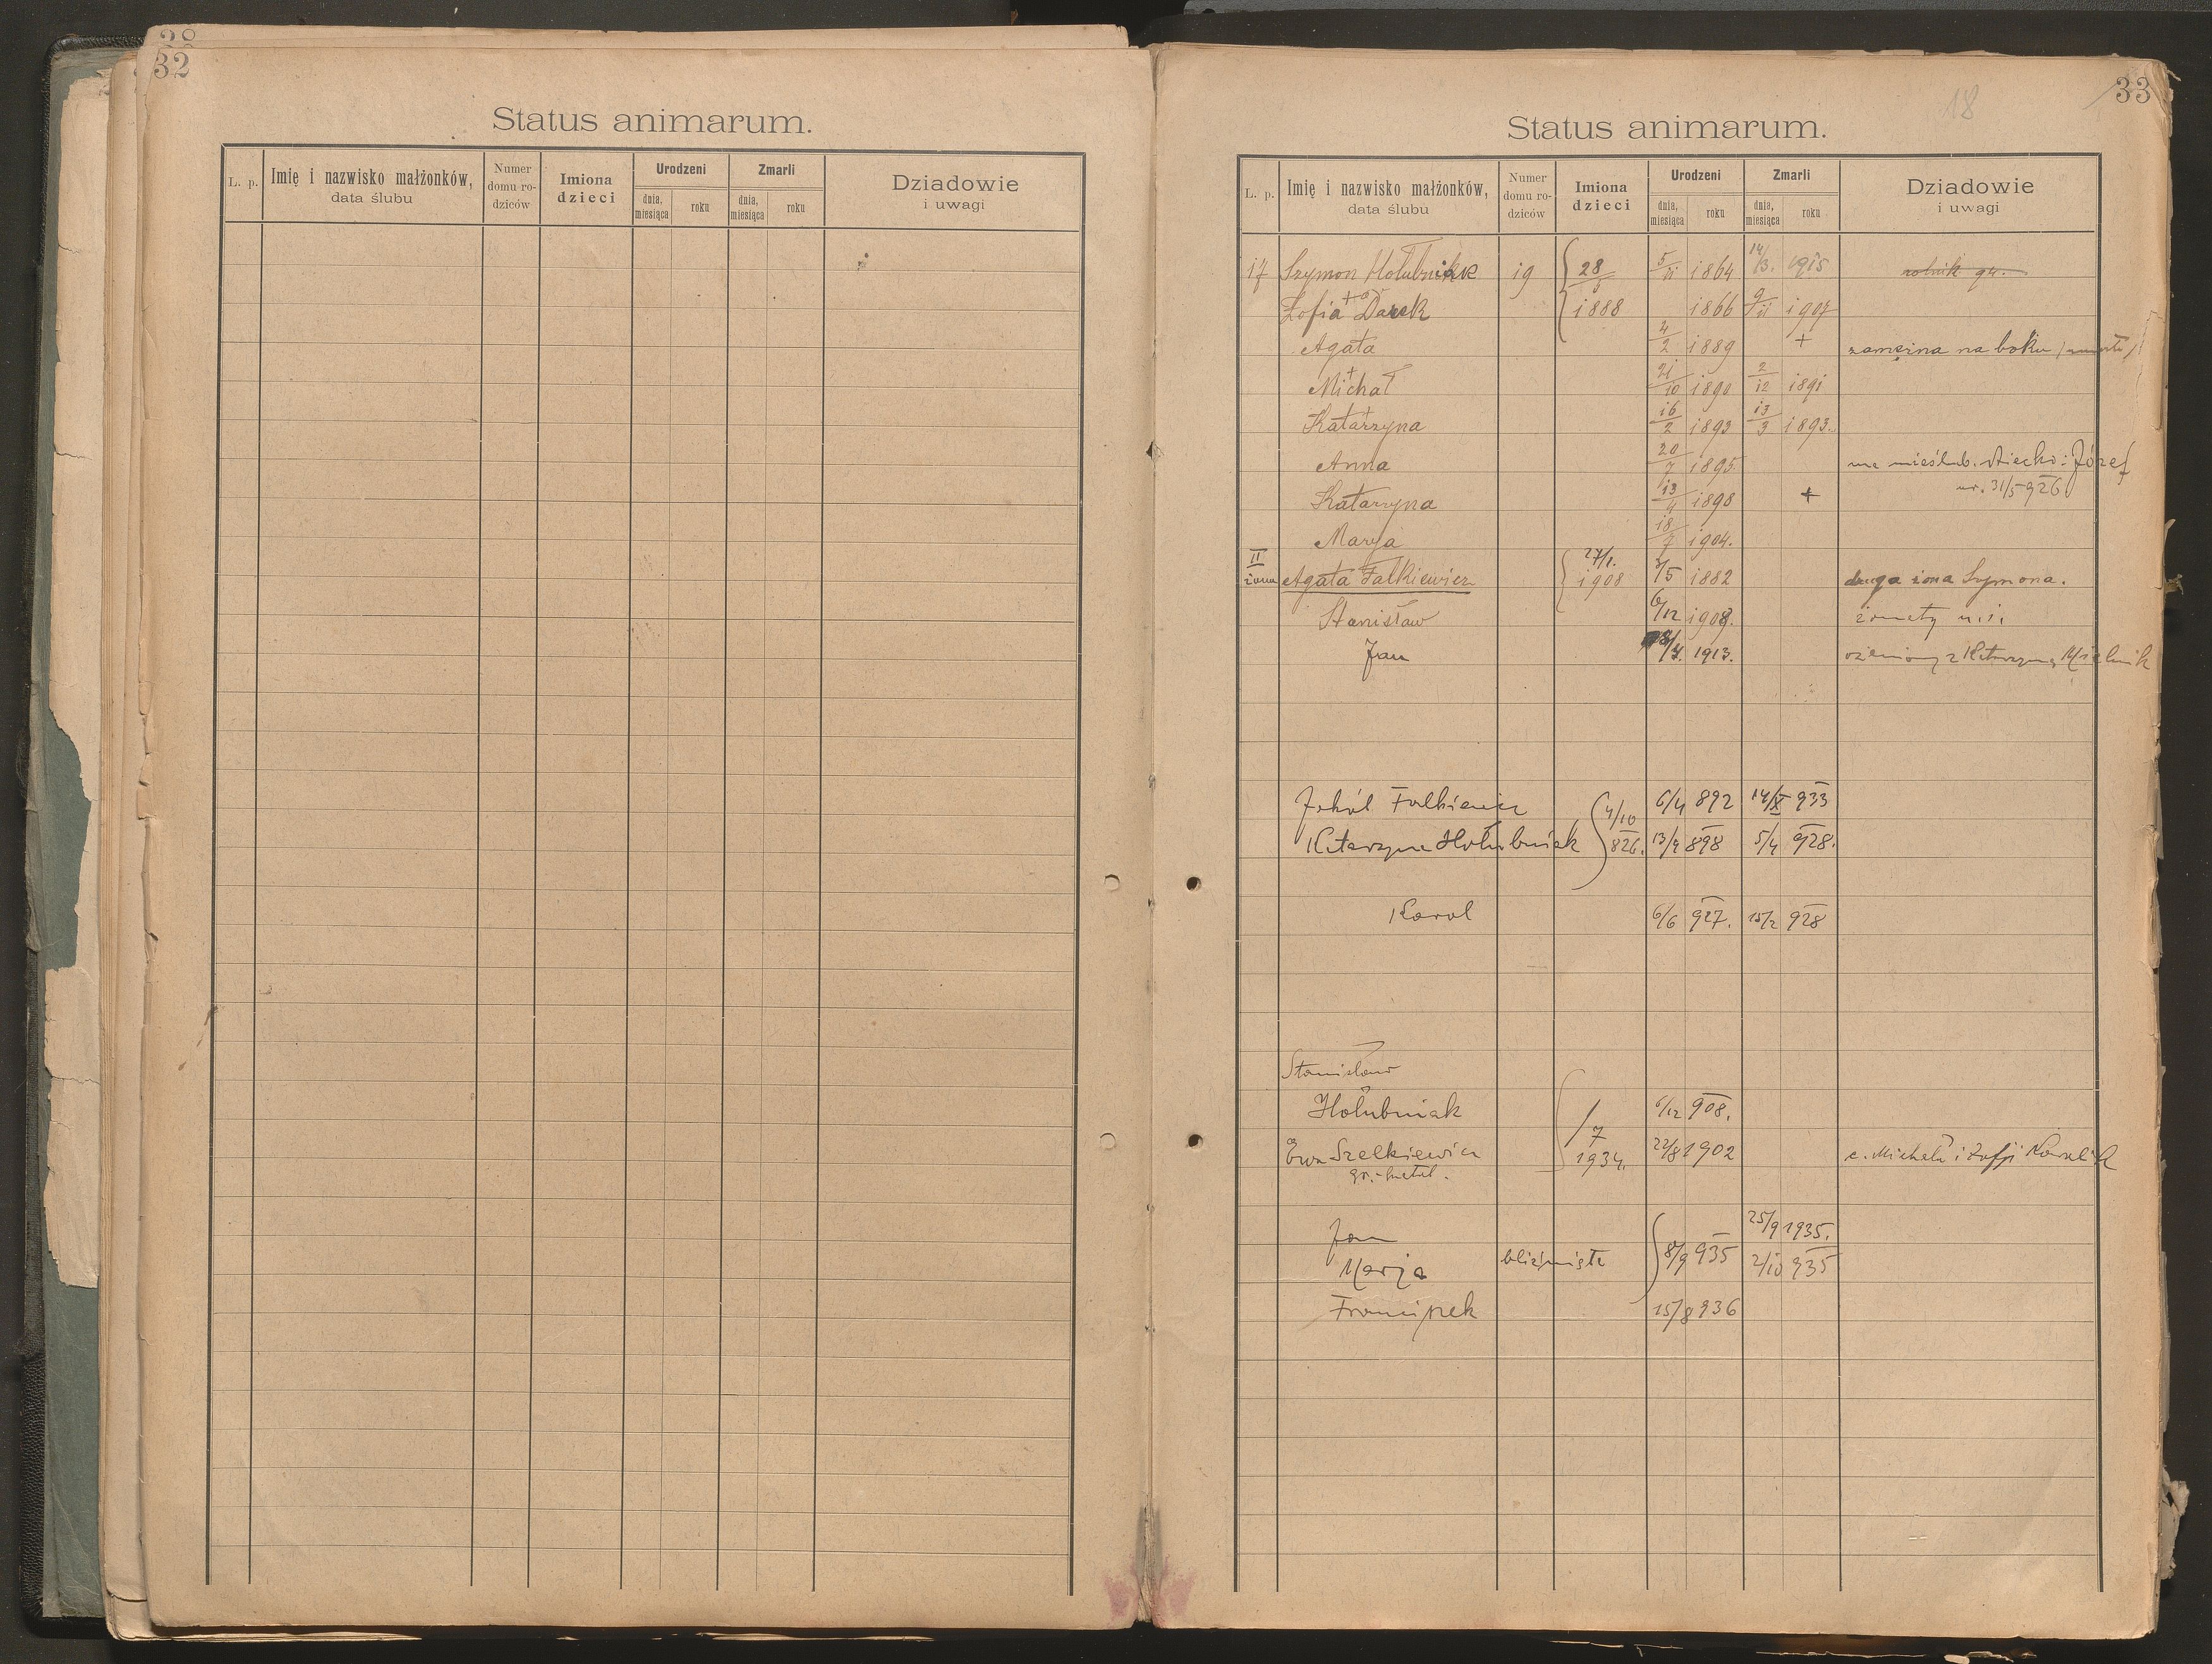 28
32
Status animarum.
L. p. Imię i nazwisko małżonków, data ślubu Numer domu rodziców Imiona dzieci Urodzeni dnia, miesiąca roku Zmarli dnia, miesiąca roku Dziadowie i uwagi
33
18
Status animarum.
L. p. Imię i nazwisko małżonków, data ślubu Numer domu rodziców Imiona dzieci Urodzeni dnia, miesiąca roku Zmarli dnia, miesiąca roku Dziadowie i uwagi
17 Szymon Hołubniak 19 28/5 5/11 1864 14/3. 1915 rolnik gr.
Zofia + Darek 1888 1866 9/11 1907
Agata 4/2 1889 + zamężna na boku
Michał + 21/10 1890 2/12 1891
Katarzyna + 16/2 1893 13/3 1893.
Anna 20/7 1895 ma nieślub. dziecko: Józef
ur. 31/5 926
Katarzyna 13/4 1898 +
Marya 18/7 1904.
II żona Agata Falkiewicz 27/1. 1908 3/5 1882 druga żona Szymona.
Stanisław 6/12 1908. żonaty n. i.
Jan 1913. ożeniony z Katarzyną Mielnik
Jakób Falkiewicz 4/10 6/4 892 14/X 933
Katarzyna Hołubniak 826. 13/4 898 5/4 928.
Karol 6/6 927. 15/2 928
Stanisław
Hołubniak 6/12 908.
Ewa Szelkiewicz /7 1934. 22/8 1902 c. Michała i Zofji Kowalik
Jan 25/9 1935.
Marja bliźnięta 8/9 935 2/10 935
Franciszek 15/8 936